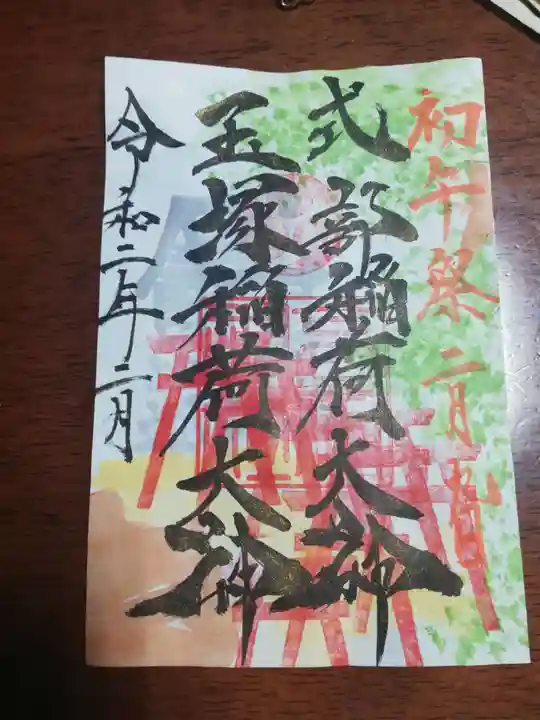 初午祭 二月九日
式部稲荷大神
玉塚稲荷大神
令和二年二月